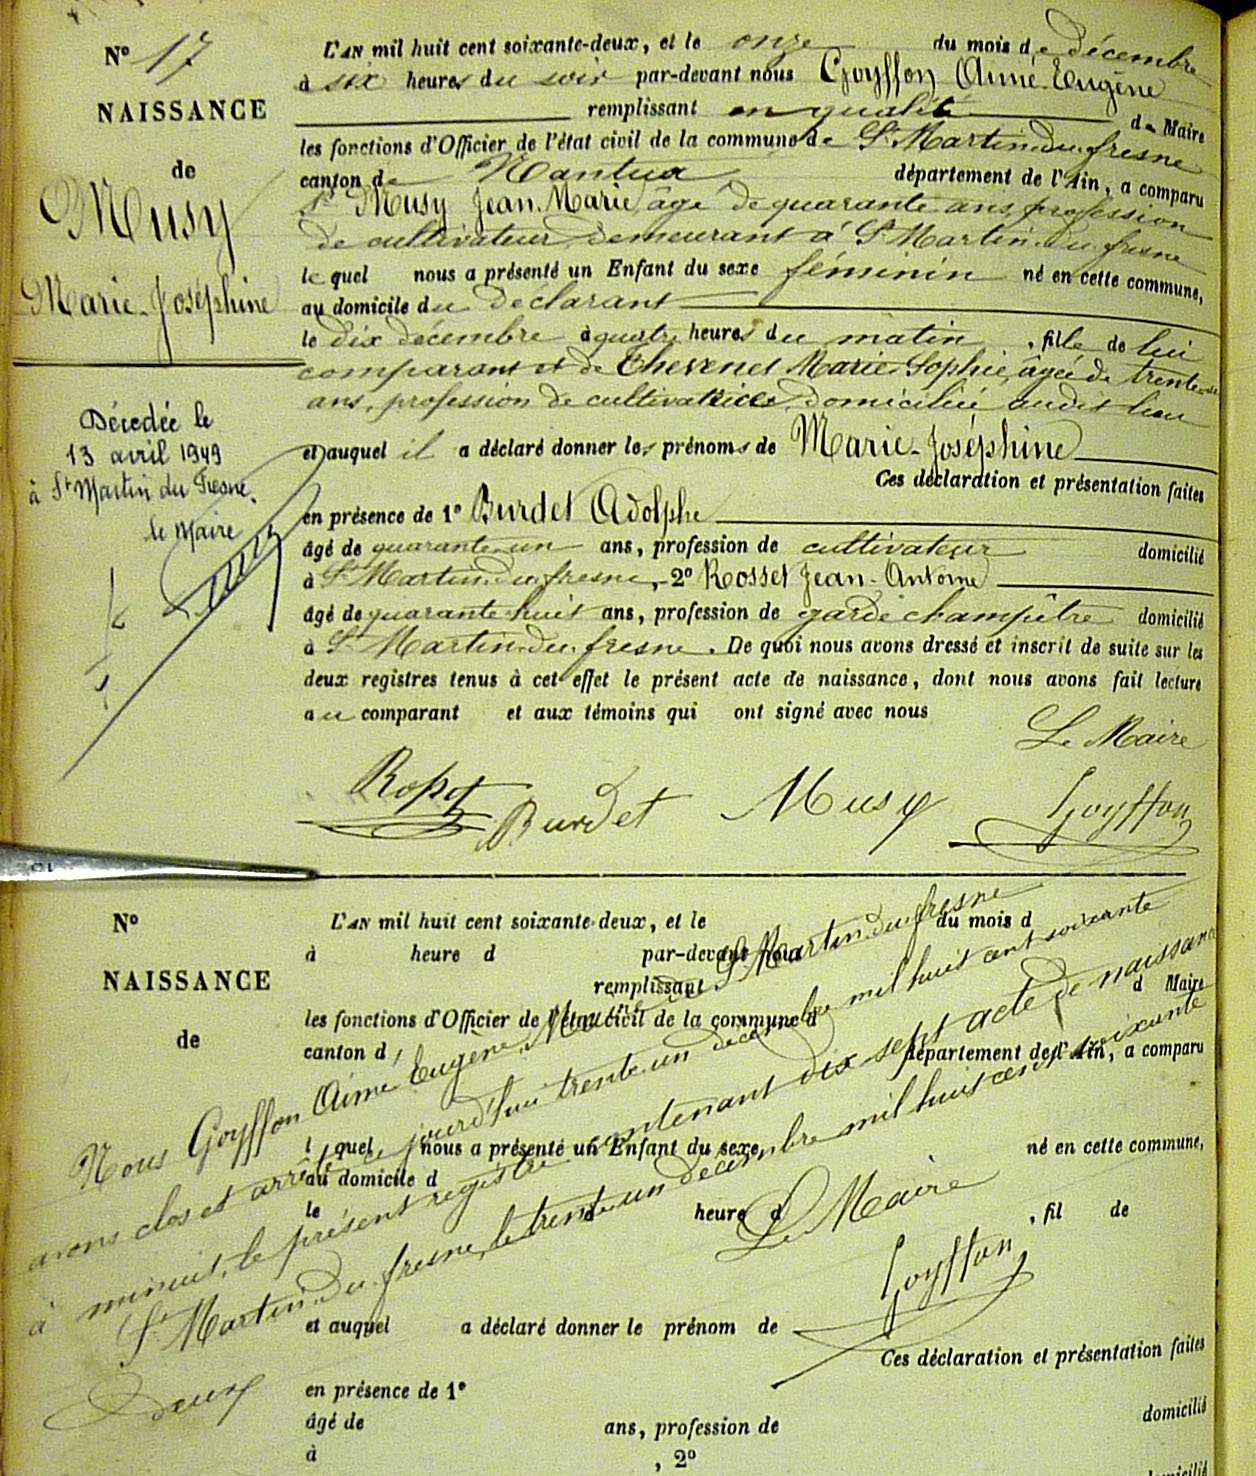 N° 17
NAISSANCE
de
Musy
Marie-Joséphine
Décedée le
13 avril 1949
à St Martin du Fresne.
le Maire
L'AN mil huit cent soixante-deux, et le onze du mois de décembre
à six heures du soir par-devant nous Goyffon Aimé-Eugène
remplissant en qualité de Maire
les fonctions d'Officier de l'état civil de la commune de St Martin-du-fresne
canton de Nantua département de l'Ain, a comparu
Sr Musy Jean-Marie, âgé de quarante ans, profession
de cultivateur, demeurant à St Martin-du-fresne
le quel nous a présenté un Enfant du sexe féminin né en cette commune,
au domicile du déclarant
le dix décembre à quatre heures du matin, fille de lui
comparant et de Chevenet Marie-Sophie, âgée de trente
ans, profession de cultivatrice, domiciliée audit lieu
et auquel il a déclaré donner les prénoms de Marie-Joséphine
Ces déclaration et présentation faites
en présence de 1° Burdet Adolphe
âgé de quarante-un ans, profession de cultivateur domicilié
à St Martin-du-fresne, 2° Rosset Jean-Antoine
âgé de quarante-huit ans, profession de garde champêtre domicilié
à St Martin-du-fresne. De quoi nous avons dressé et inscrit de suite sur les
deux registres tenus à cet effet le présent acte de naissance, dont nous avons fait lecture
au comparant et aux témoins qui ont signé avec nous
Le Maire
Rosset Burdet Musy Goyffon
N°
NAISSANCE
de
L'AN mil huit cent soixante-deux, et le du mois d
à heure d par-devant nous
remplissant d Maire
les fonctions d'Officier de l'état civil de la commune d
canton d département de l'Ain, a comparu
l quel nous a présenté un Enfant du sexe né en cette commune,
au domicile d
le à heure d , fil de
et auquel a déclaré donner le prénom de
Ces déclaration et présentation faites
en présence de 1°
âgé de ans, profession de domicilié
à , 2°
domicilié
Nous Goyffon Aimé Eugène, Maire de St Martin-du-fresne
avons clos et arrêté ce jourd'hui trente-un décembre mil huit cent soixante
à minuit, le présent registre contenant dix sept acte de naissance
St Martin-du-fresne, le trente-un décembre mil huit cent soixante
deux
Le Maire
Goyffon